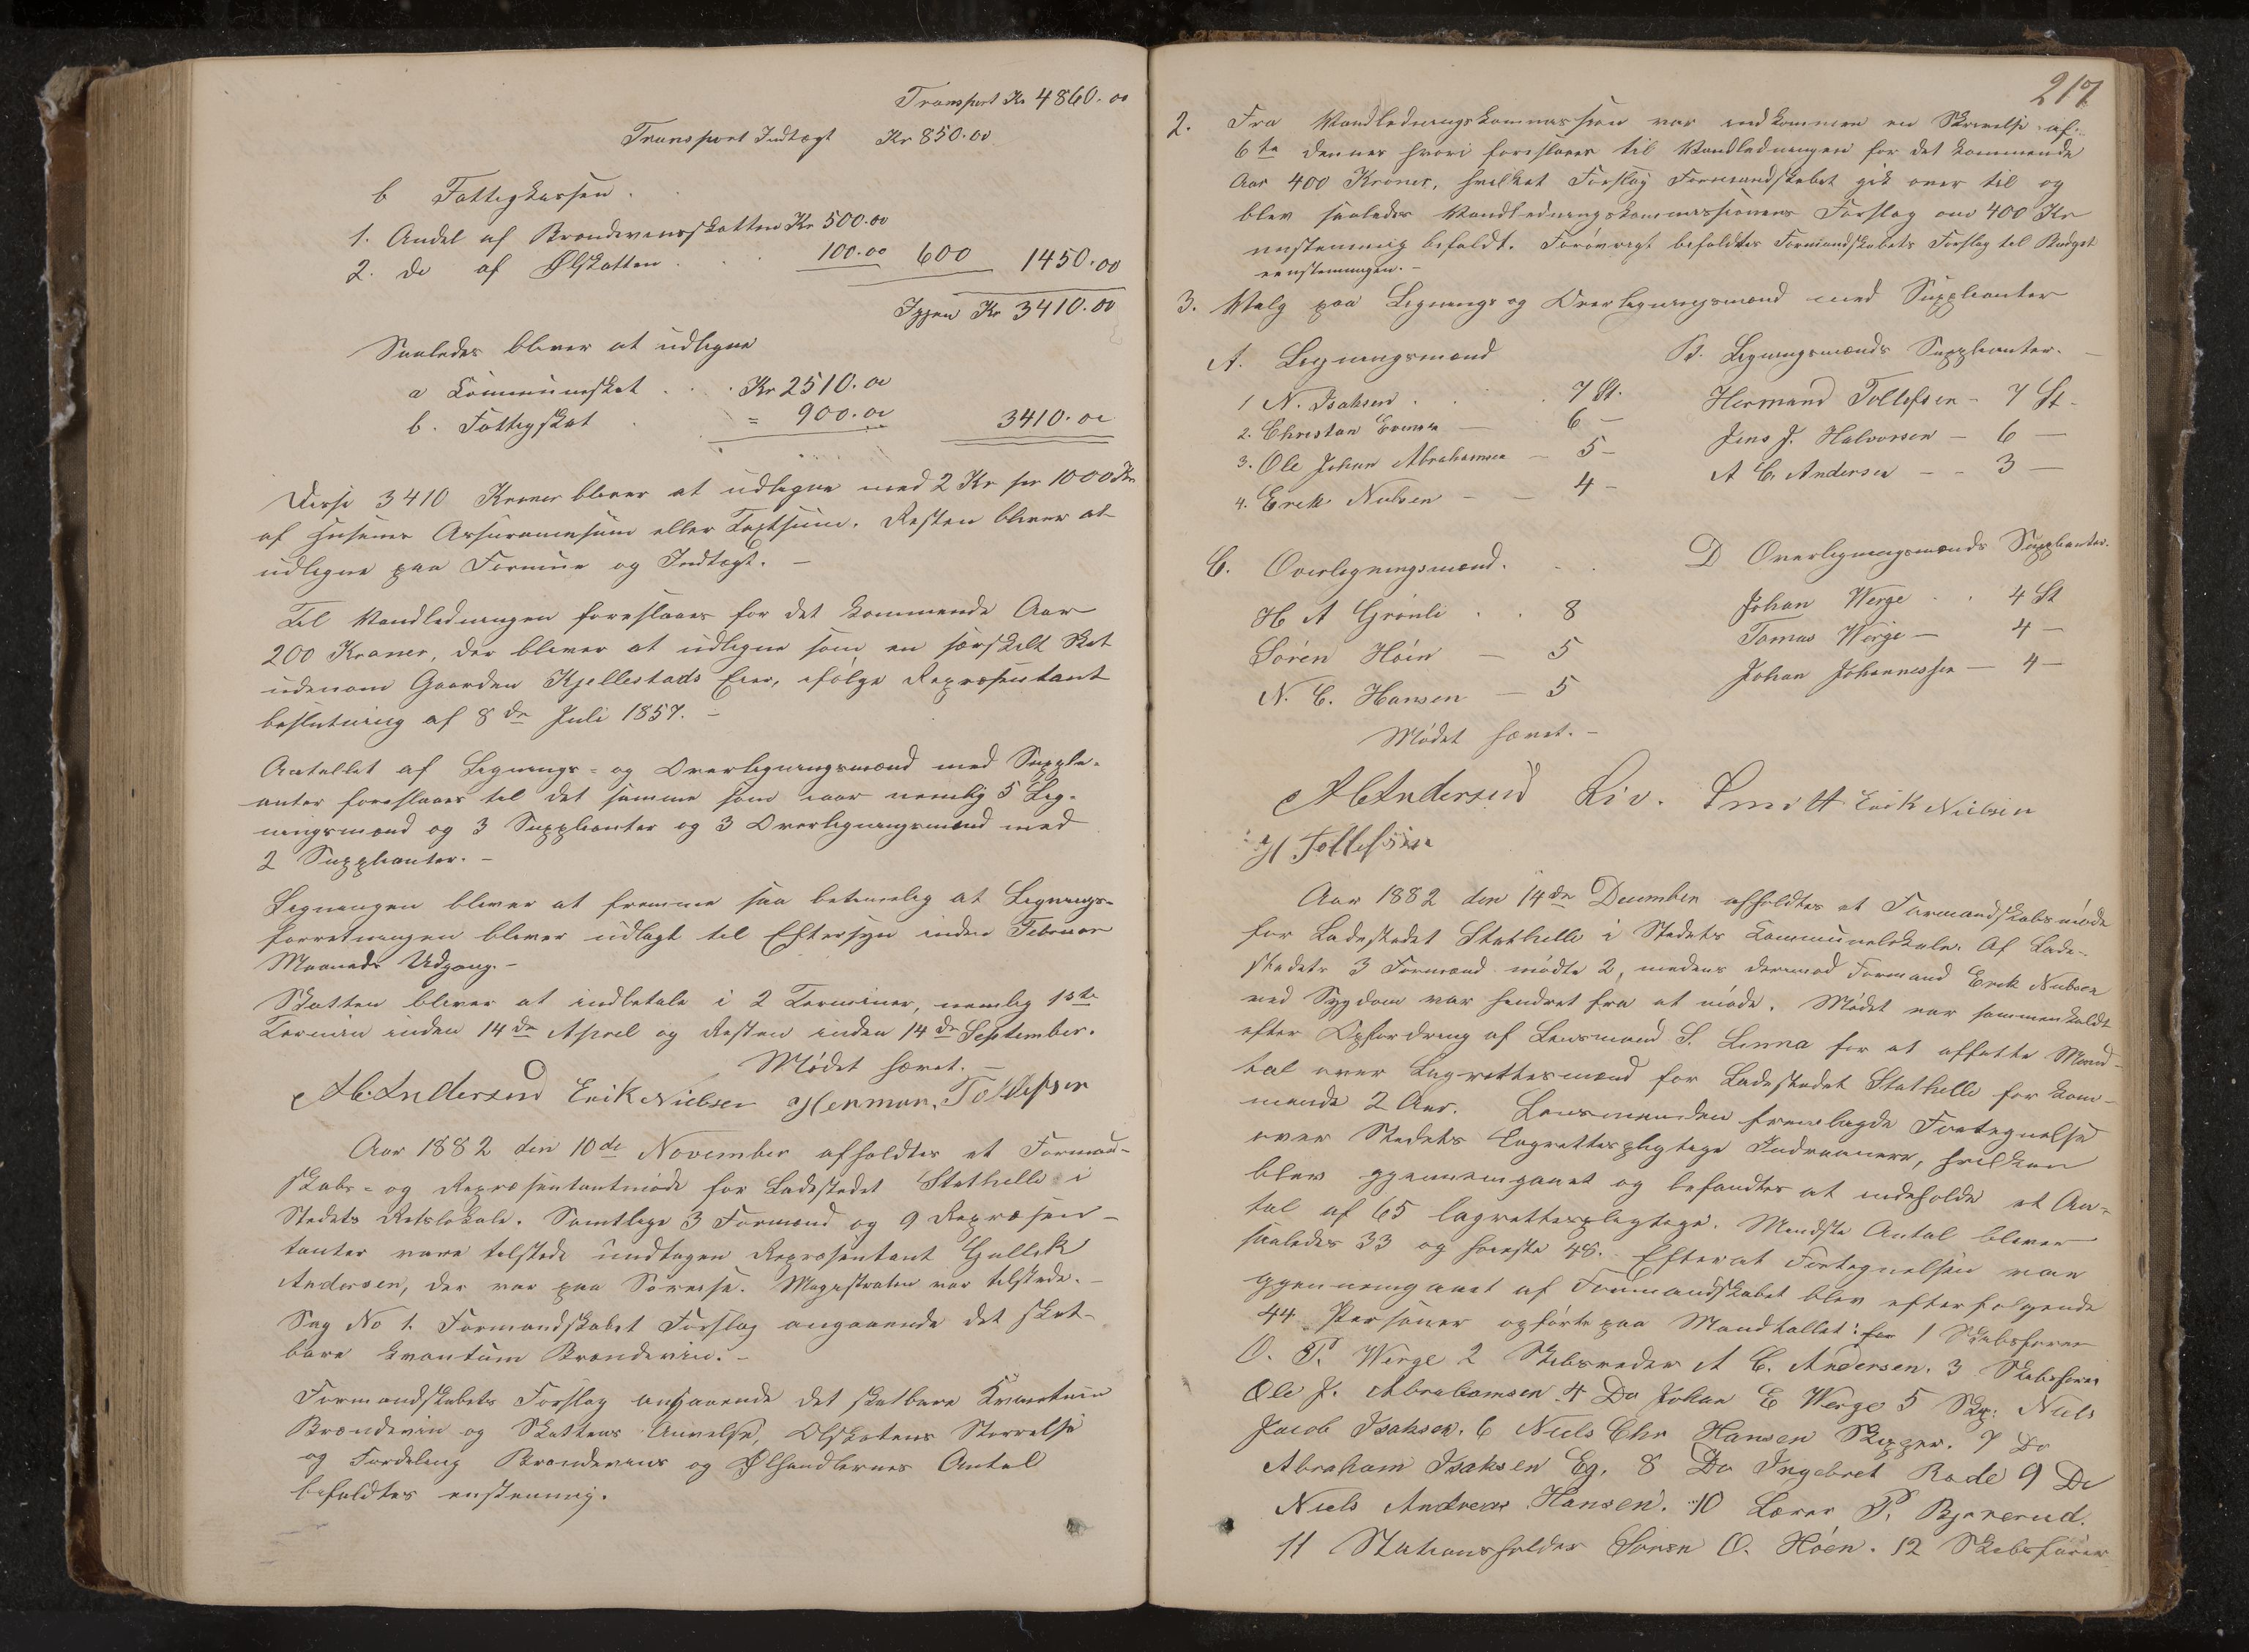 Transport Kr 4860.00
Transport Indtægt Kr 850.00
b Fattigkassen.
1. Andel af Brændevinsskatten Kr 500.00
2. do af Ølskatten . . . 100.00 600 1450.00
Igjen Kr 3410.00
Saaledes bliver at udligne
a Communeskat . . . Kr 2510.00
b. Fattigskat . . = 900.00 3410.00
Disse 3410 Kroner bliver at udligne med 2 Kr pr 1000 Kr
af Husenes Assurancesum eller Taxtsum. Resten bliver at
udligne paa Formue og Indtægt. –
Til Vandledningen foreslaaes for det kommende Aar
200 Kroner, der bliver at udligne som en særskilt Skat
udenom Gaarden Kjellestads Eier, ifølge Repræsentant
beslutning af 8de Juli 1857. –
Antallet af Lignings- og Overligningsmænd med Supple-
anter foreslaaes til det samme som iaar nemlig 5 Lig-
ningsmænd og 3 Suppleanter og 3 Overligningsmænd med
2 Suppleanter. –
Ligningen bliver at fremme saa betimelig at Lignings-
forretningen bliver udlagt til Eftersyn inden Februar
Maaneds Udgang. –
Skatten bliver at indbetale i 2 Terminer, nemlig 1ste
Termin inden 14de April og Resten inden 14de September.
Mødet hævet. –
A C. Andersen Erik Nielsen Herman Tollefsen
Aar 1882 den 10de November afholdtes et Formand-
skabs- og Repræsentantmøde for Ladestedet Stathelle i
Stedets Retslokale. Samtlige 3 Formænd og 9 Repræsen-
tanter vare tilstede undtagen Repræsentant Gullek
Andersen, der var paa Søreise. Magistraten var tilstede. –
Sag No 1. Formandskabet Forslag angaaende det skat-
bare Kvantum Brændevin. –
Formandskabets Forslag angaaende det skatbare Kvantum
Brændevin og Skattens Anvelse, Ølskatens Størrelse
og Fordeling Brændevins og Ølhandlernes Antal
bifaldtes enstemmig.
217
2. Fra Vandledningskommission var indkommen en Skrivelse af
6te dennes hvori foreslaaes til Vandledningen for det kommende
Aar 400 Kroner, hvilket Forslag Formandskabet gik over til og
blev saaledes Vandledningskommissionens Forslag om 400 Kr
enstemmig bifaldt. Forøvrigt bifaldtes Formandskabets Forslag til Budget
eenstemmigen. –
3. Valg paa Lignings og Overligningsmænd med Suppleanter
A. Ligningsmænd B. Ligningsmænds Suppleanter. –
1 N. Isaksen . . . 7 St. Hermand Tollefsen – 7 St –
2. Christan Evensen — 6 – Jens J. Halvorsen – 6 —
3. Ole Johan Abrahamsen – 5 – A C. Andersen – – 3 —
4. Erek Nielsen – – 4 –
C. Overligningsmænd. . . D Overligningsmænds Suppleanter.
H A Grønli . . 8 Johan Werge . . 4 St
Søren Høen — 5 Tomas Werge — 4 —
N. C. Hansen — 5 Johan Johannessen — 4 —
Mødet hævet. –
A C Andersen Liv. Smitt Erik Nielsen
H Tollefsen
Aar 1882 den 14de December afholdtes et Formandskabsmøde
for Ladestedet Stathelle i Stedets Kommunelokale. Af Lade-
stedets 3 Formænd mødte 2, medens derimod Formand Erek Nielsen
ved Sygdom var hindret fra at møde. Mødet var sammenkaldt
efter Opfordring af Lensmand S. Linna for at affatte Mand-
tal over Lagrettesmænd for Ladestedet Stathelle for kom-
mende 2 Aar. Lensmanden fremlagde Fortegnelse
over Stedets Lagrettespligtige Indvaanere, hvilken
blev gjennemgaaet og befandtes at indeholde et An-
tal af 65 lagrettespligtige. Mindste Antal bliver
saaledes 33 og høieste 48. Efterat Fortegnelsen var
gjennemgaaet af Formandskabet blev efterfølgende
44 Personer opførte paa Mandtallet: for 1 Skibsfører
O. T. Werge 2 Skibsreder A C. Andersen. 3 Skibsfører
Ole J. Abrahamsen 4 Do Johan E Werge 5 Skp: Niels
Jacob Isaksen. 6 Niels Chr Hansen Skipper. 7 Do
Abraham Isaksen Eg. 8 Do Ingebret Rode 9 Do
Niels Andreas Hansen. 10 Lærer P. Bjererud.
11 Stationsholder Søren O. Høen. 12 Skibsfører